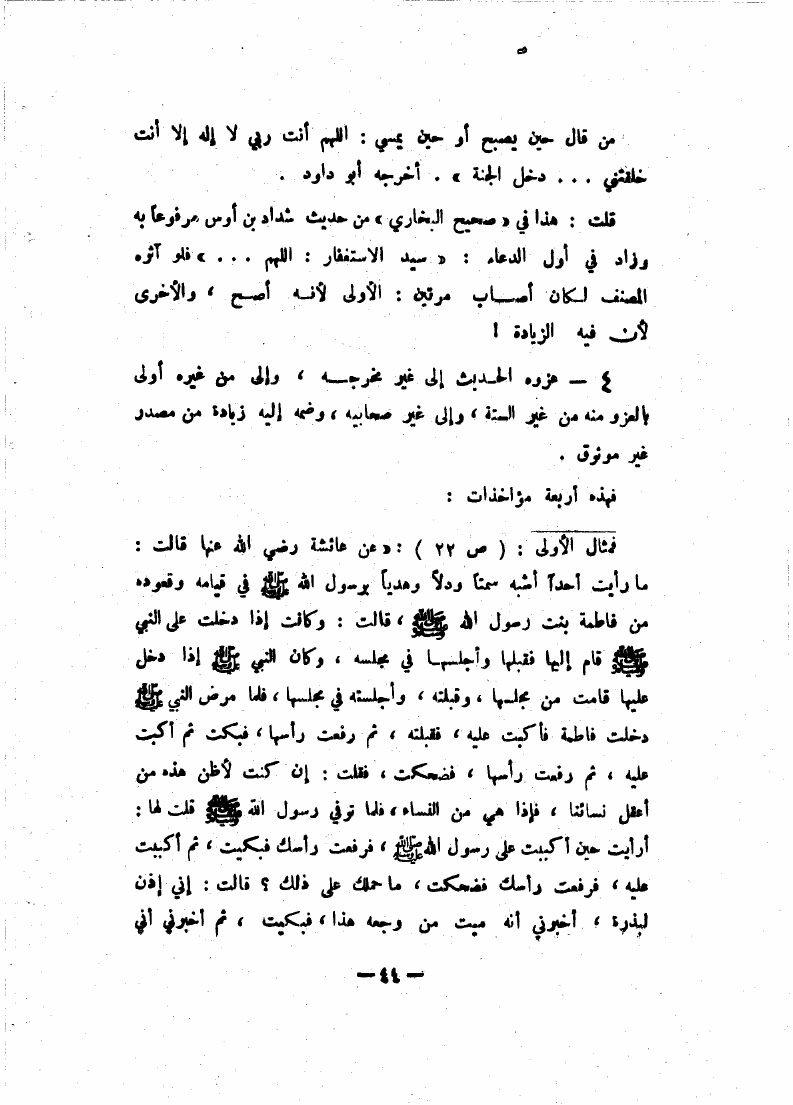 من قال حين يصبح أو حين يمسي : اللهم أنت ربي لا إله إلا أنت
خلقتني . . . دخل الجنة » . أخرجه أبو داود .
قلت : هذا في « صحيح البخاري » من حديث شداد بن أوس مرفوعاً به
وزاد في أول الدعاء : « سيد الاستغفار : اللهم . . . » فلو آثره
المصنف لكان أصاب مرتين : الأولى لأنه أصح ، والأخرى
لأن فيه الزيادة !
٤ — عزوه الحديث إلى غير مخرجه ، وإلى من غيره أولى
بالعزو منه من غير الستة ، وإلى غير صحابيه ، وضمه إليه زيادة من مصدر
غير موثوق .
فهذه أربعة مؤاخذات :
فمثال الأولى : ( ص ٢٢ ) : « عن عائشة رضي الله عنها قالت :
ما رأيت أحداً أشبه سمتاً ودلاً وهدياً برسول الله ﷺ في قيامه وقعوده
من فاطمة بنت رسول الله ﷺ ، قالت : وكانت إذا دخلت على النبي
ﷺ قام إليها فقبلها وأجلسها في مجلسه ، وكان النبي ﷺ إذا دخل
عليها قامت من مجلسها ، وقبلته ، وأجلسته في مجلسها ، فلما مرض النبي ﷺ
دخلت فاطمة فأكبت عليه ، فقبلته ، ثم رفعت رأسها ، فبكت ثم أكبت
عليه ، ثم رفعت رأسها ، فضحكت ، فقلت : إن كنت لأظن هذه من
أعقل نسائنا ، فإذا هي من النساء ، فلما توفي رسول الله ﷺ قلت لها :
أرأيت حين أكببت على رسول الله ﷺ ، فرفعت رأسك فبكيت ، ثم أكببت
عليه ، فرفعت رأسك فضحكت ، ما حملك على ذلك ؟ قالت : إني إذن
لبذرة ، أخبرني أنه ميت من وجعه هذا ، فبكيت ، ثم أخبرني أني
— ٤٤ —